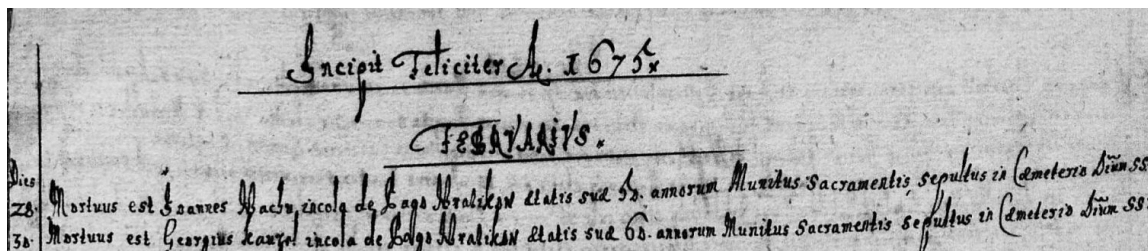 Incipit Feliciter A. 1675
FEBRVARIVS.
Dies
28. Mortuus est Joannes incola de Pago Ætatis suæ 50. annorum Munitus Sacramentis sepultus in Cæmeterio Divũm SS
30. Mortuus est Georgius incola de Pago Ætatis suæ 60. annorum Munitus Sacramentis sepultus in Cæmeterio Divũm SS: